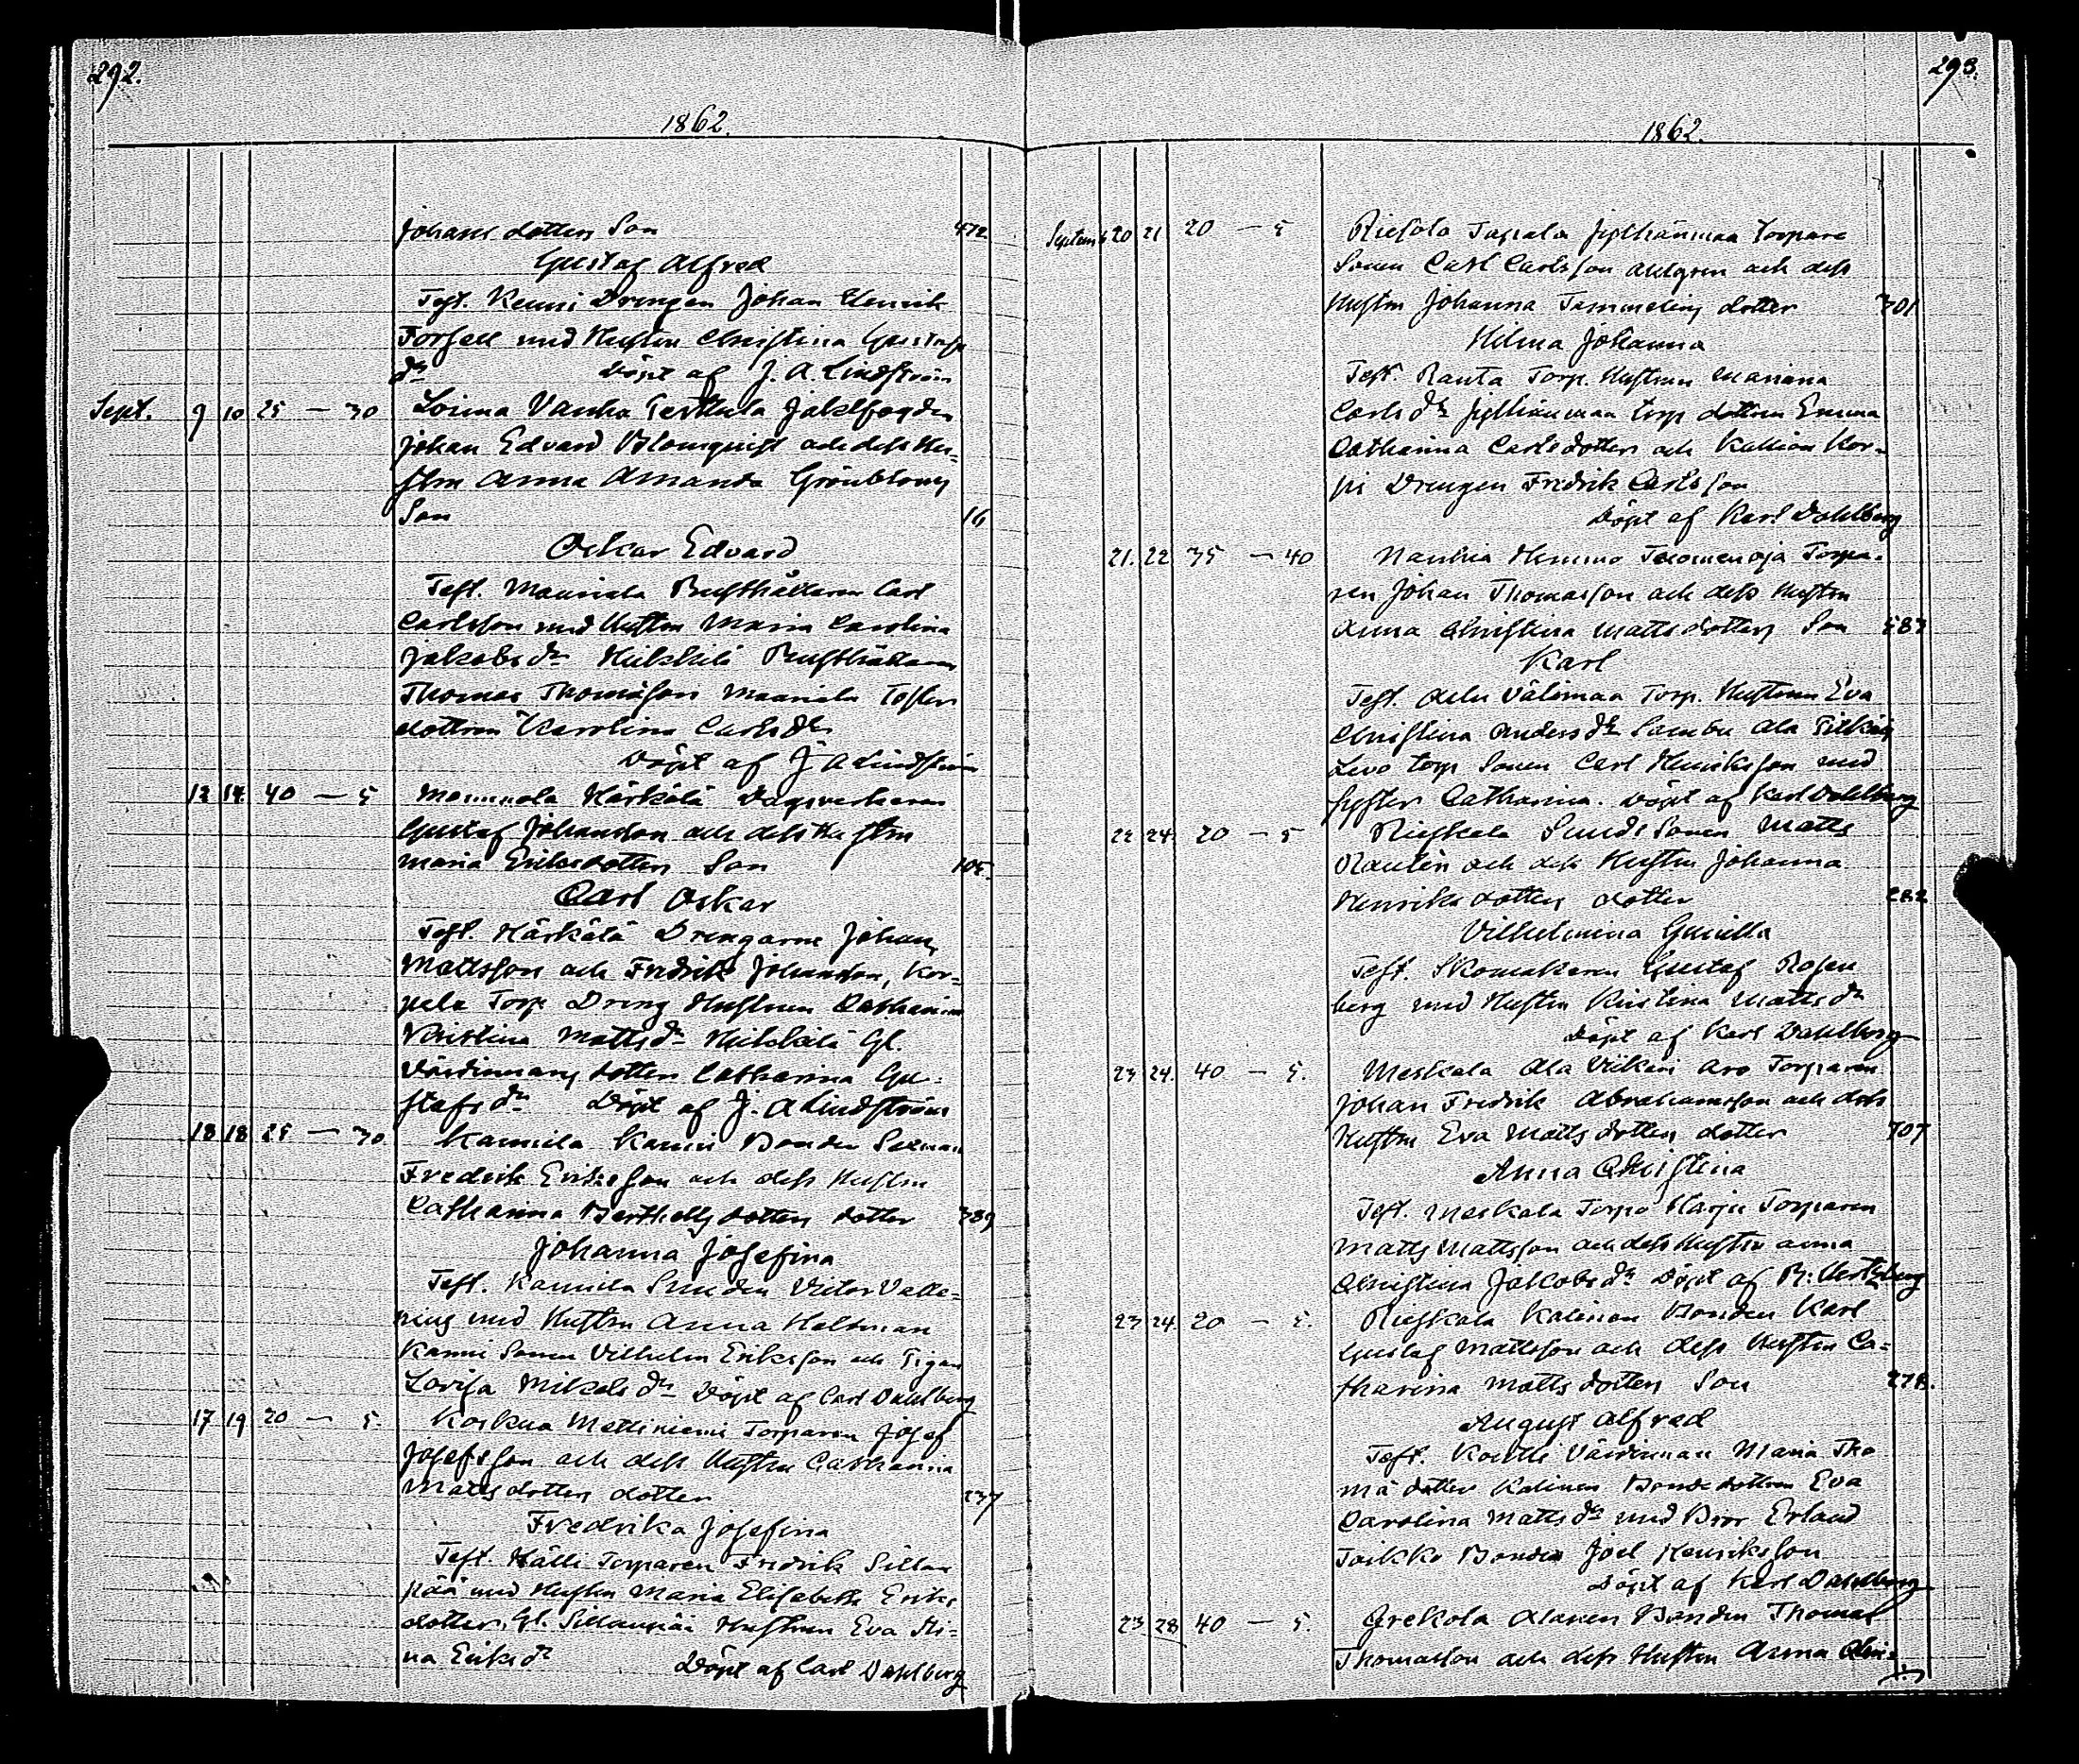 292.
1862.
Johans dotters Son 472
Gustaf Alfred
Test. Kenni Drengen Johan Henrik
Forsell med Hustru Christina Gustafs
dr Döpt af J. A. Lindström
Sept. 9 10 25 — 30 Loima Vanha Perttula Jaktfogden
Johan Edvard Blomqvist och dess Hu-
stru Anna Amanda Grönbloms
Son 16
Oskar Edvard
Test. Mauriala Rusthållaren Carl
Carlsson med Hustru Maria Carolina
Jakobs dr Heikkilä Rusthållaren
Thomas Thomasson Mauriala
dottren Karolina Carls dr
Döpt af J A Lindström
12 14 40 — 5 Mommola Härkälä Dagsverkaren
Gustaf Johansson och dess Hustru
Maria Eriksdotters Son 105.
Carl Oskar
Test. Härkälä Drengarne Johan
Mattsson och Fredrik Johansson, Kor-
pela Torp Dreng Hustrun Catharina
Kristina Matts dr Heikkilä Gl.
Värdinnans dotter Catharina Gu-
stafs dr Döpt af J. A Lindström
18 18 25 — 30 Kannila Kanni Bonden
Fredrik Eriksson och dess Hustru
Catharina Berthells dotters dotter 389
Johanna Josefina
Test. Kannila Smeden Victor Valle-
nius med Hustru Anna Holtman
Kanni Sonen Vilhelm Eriksson och Pigan
Lovisa Mikels dr Döpt af Carl Dahlberg
17 19 20 — 5. Koskua Mattiniemi Torparen Josef
Josefsson och dess Hustru Catharina
Matts dotters dotter 237
Fredrika Josefina
Test. Hälli Torparen Fredrik Sillan
pää med Hustru Maria Elisabeth Eriks
dotter, Gl. Sillanpää Hustrun Eva Sti-
na Eriks dr Döpt af Carl Dahlberg
293.
1862.
Septemb 20 21 20 — 5 Riesola Tapala Jyllhänmaa Torpare
Sonen Carl Carlsson Ahlgren och dess
Hustru Johanna Tammelins dotter 301
Hilma Johanna
Test. Ranta Torp. Hustrun Mariana
Carls dr Jyllhänmaa torp dottren Emma
Catharina Carlsdotter och Kallion Kor-
pi Drengen Fredrik Carlsson
Döpt af Karl Dahlberg
21. 22 35 — 40 Nanhia Hemmo Tuomenoja Torpa-
ren Johan Thomasson och dess Hustru
Anna Christina Matts dotters Son 583
Karl
Test. Välimaa Torp. Hustrun Eva
Christina Anders dr Sambu Ala
Levo torp Sonen Carl Henriksson med
Syster Catharina. Döpt af Karl Dahlberg
22 24 20 — 5 Rieskala Smeds Sonen Matts
Rautin och dess Hustru Johanna
Henriks dotters dotter 282
Vilhelmina Gunilla
Test. Skomakaren Gustaf Rosen
berg med Hustru Kristina Matts dr
Döpt af Karl Dahlberg
23 24. 40 — 5. Meskala Ala Viikari Aro Torparen
Johan Fredrik Abrahamsson och dess
Hustru Eva Matts dotters dotter 707
Anna Christina
Test. Meskala Torpo Harju Torparen
Matts Mattsson och dess Hustru Anna
Christina Jakobs dr Döpt af R. Hertzberg
23 24. 20 — 5. Rieskala Kalinen Bonden Karl
Gustaf Mattsson och dess Hustru Ca-
tharina Matts dotters Son 278.
August Alfred
Test. Värdinnan Maria Tho
mä dotter Kalinen Bonde dottren Eva
Carolina Matts dr med Bror Erland
Toikko Bonden Joel Henriksson
Döpt af Karl Dahlberg
23 28 40 — 5. Jrekola Alanen Bonden Thomas
Thomasson och dess Hustru Anna Chri-